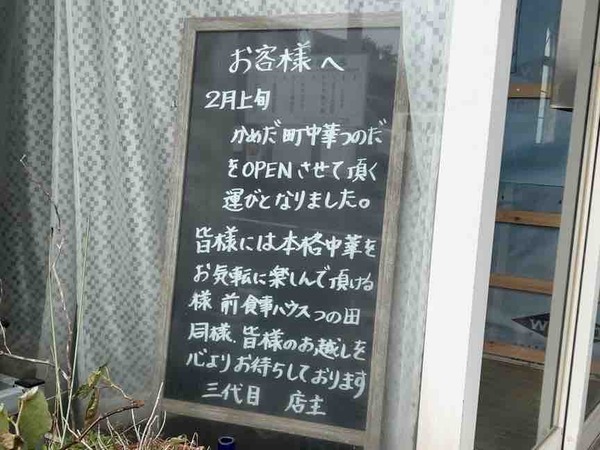 お客様へ
2月上旬
かめだ町中華つのだ
をOPENさせて頂く
運びとなりました。
皆様には本格中華を
お気転に楽しんで頂ける
様 前食事ハウスつの田
同様、皆様のお越しを
心よりお待ちしております
三代目 店主
W